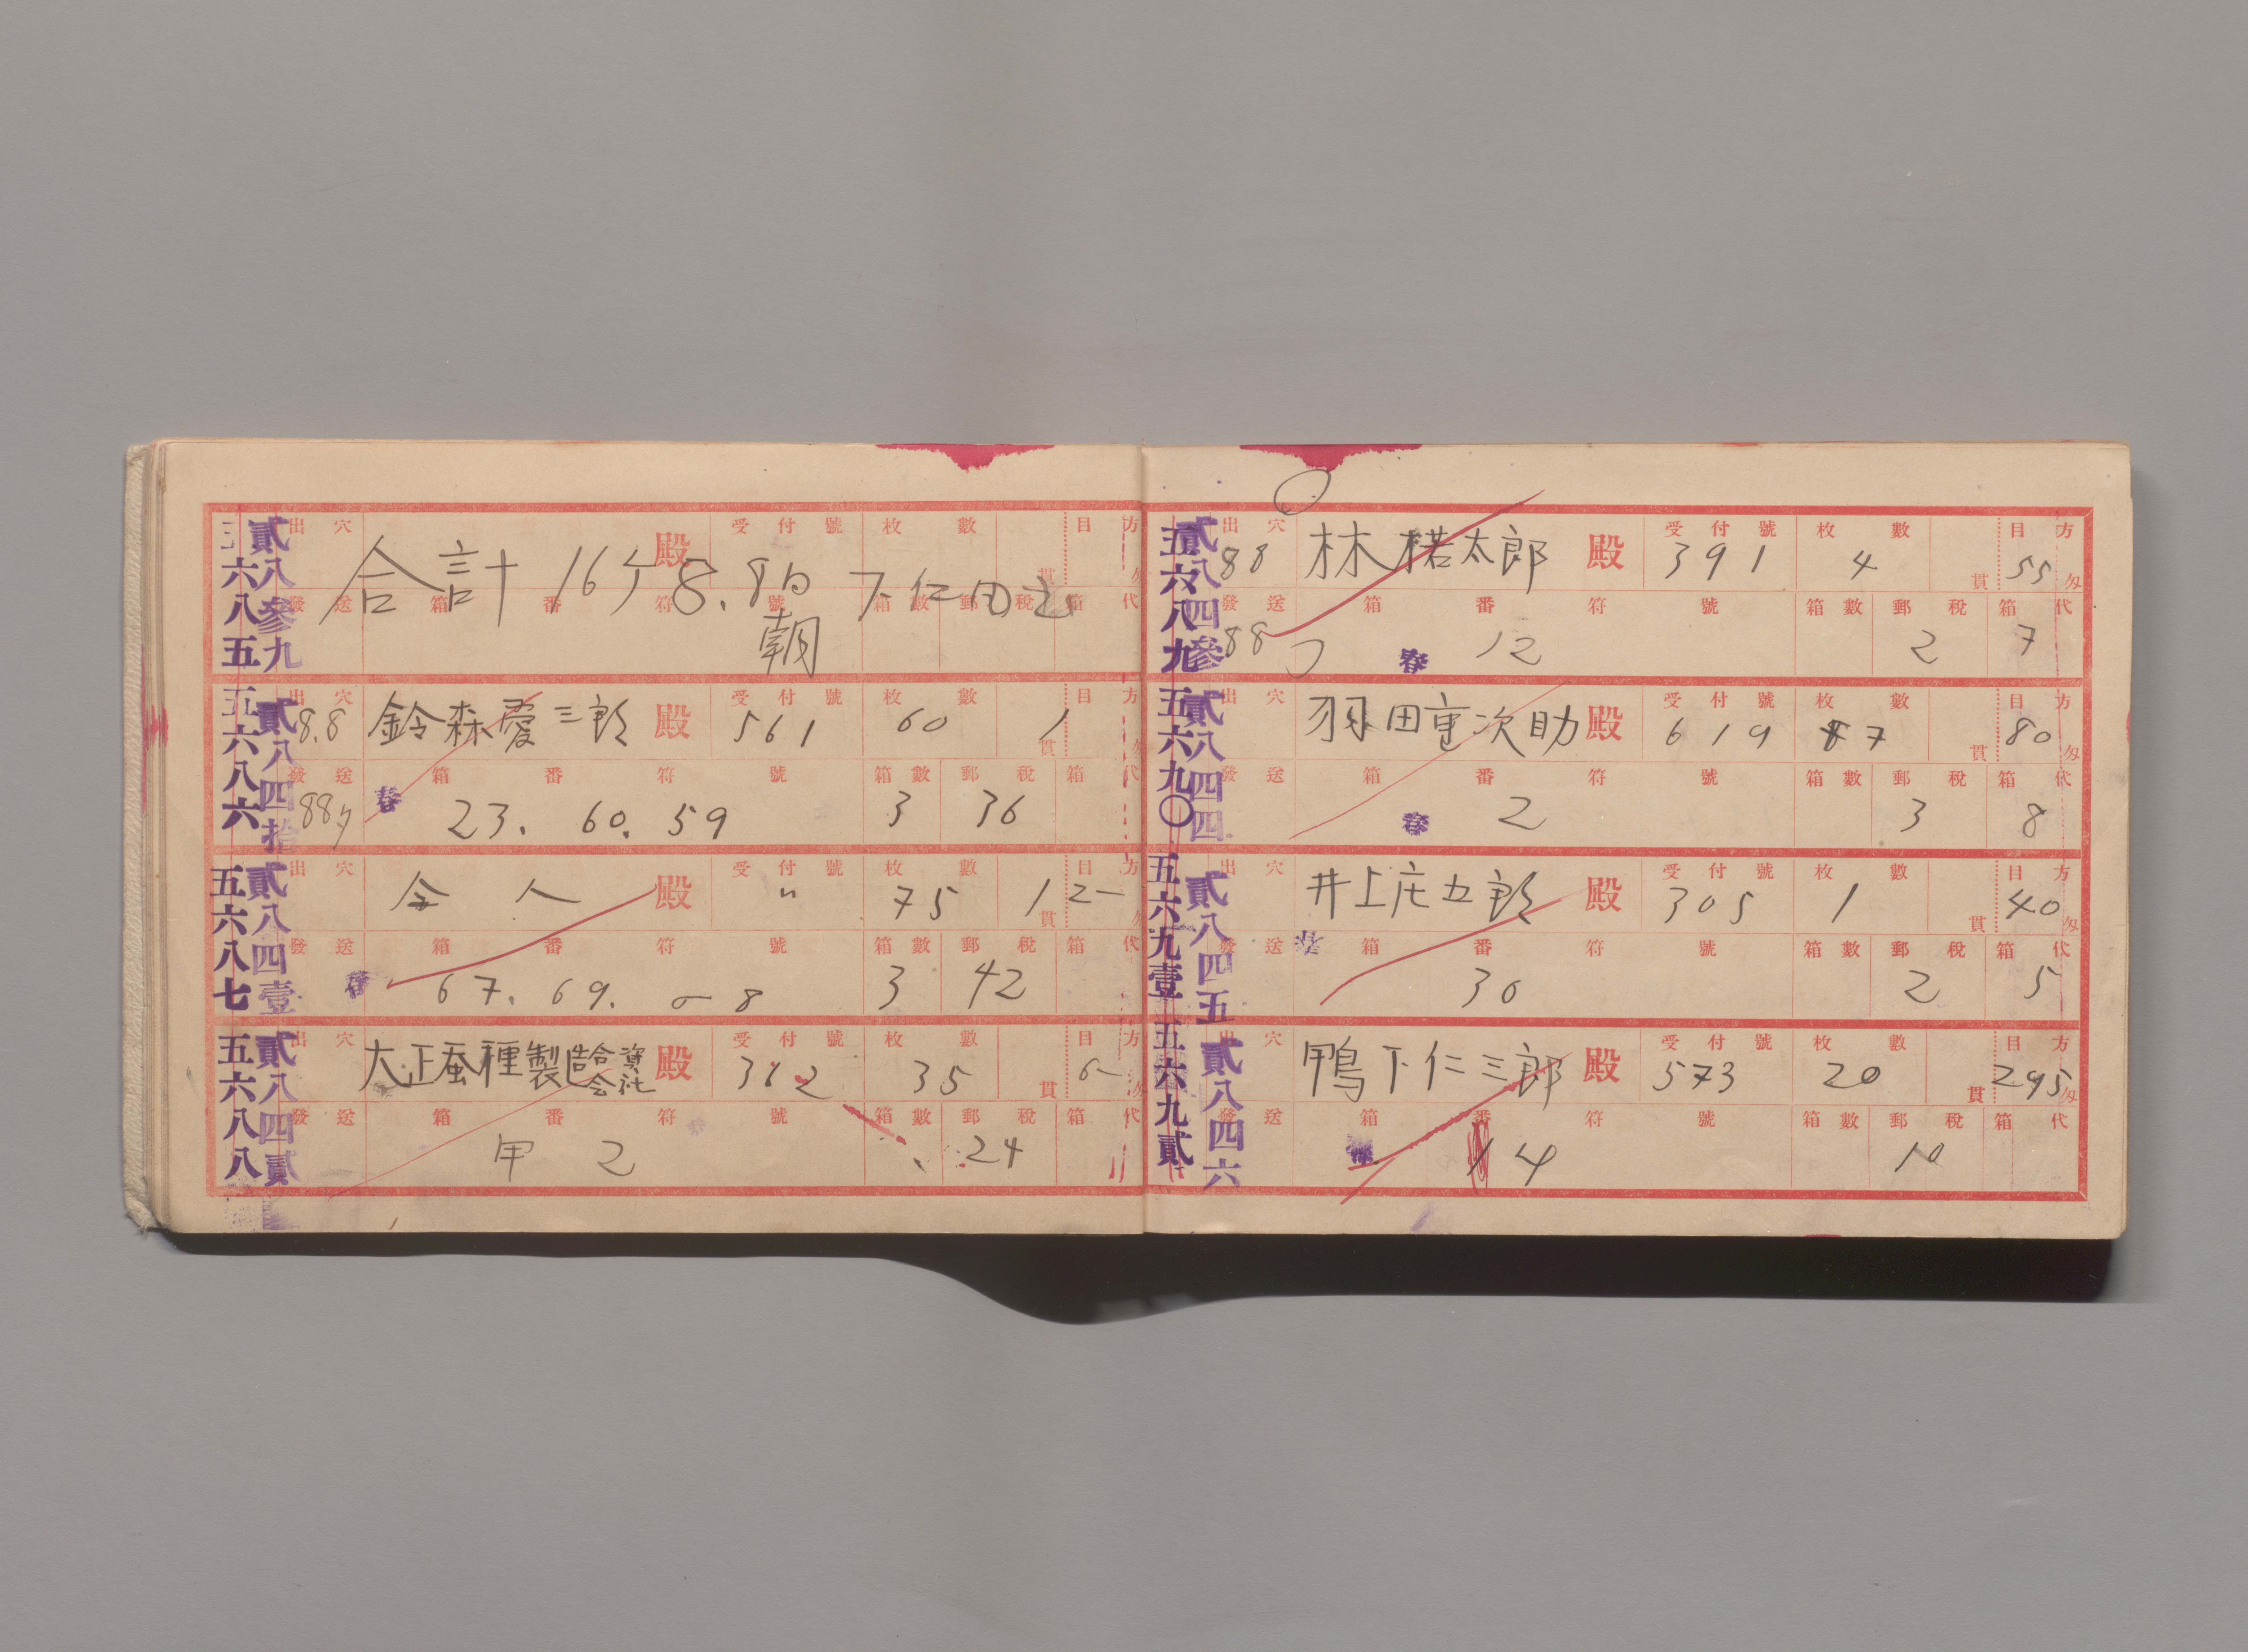 五六八五 貳八參九
出穴 合計 16ケ 8.8日 下仁田送 殿 受付號 枚數 貫 目方 匁
發送 箱番符號 朝 箱數 郵稅 箱代
五六八六 貳八四拾
出穴 8.8 鈴森愛三郎 殿 受付號 561 枚數 60 1 貫 目方 匁
發送 88夕 箱番符號 春 23. 60. 59 箱數 3 郵稅 36 箱代
五六八七 貳八四壹
出穴 仝人 殿 受付號 〃 枚數 75 1 貫 目方 匁
發送 箱番符號 春 67. 69. 箱數 3 郵稅 42 箱代
五六八八 貳八四貳
出穴 大正蚕種製造合資会社 殿 受付號 312 枚數 35 貫 目方 匁
發送 箱番符號 甲 2 箱數 郵稅 24 箱代
五六八九 貳八四參
出穴 88 林楉太郎 殿 受付號 391 枚數 4 貫 目方 55 匁
發送 88 箱番符號 春 12 箱數 郵稅 2 箱代 7
五六九〇 貳八四四
出穴 羽田重次助 殿 受付號 619 枚數 7 貫 目方 80 匁
發送 箱番符號 春 2 箱數 郵稅 3 箱代 8
五六九壹 貳八四五
出穴 井上庄五郎 殿 受付號 305 枚數 1 貫 目方 40 匁
發送 春 箱番符號 30 箱數 郵稅 2 箱代 5
五六九貳 貳八四六
出穴 鴨下仁三郎 殿 受付號 573 枚數 20 貫 目方 295 匁
發送 箱番符號 14 箱數 郵稅 10 箱代